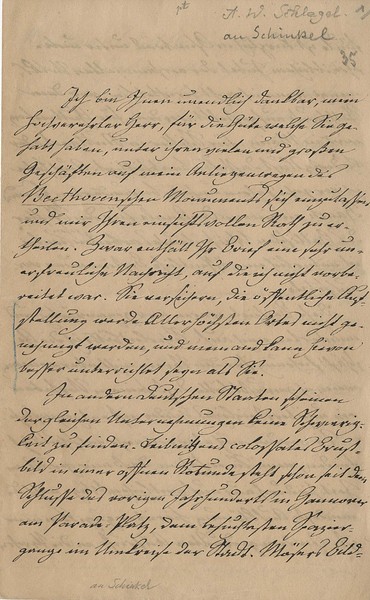 A. W. Schlegel.
an Schinkel
35
Ich bin Ihnen unendlich dankbar, mein
hochverehrter Herr, für die Güte welche Sie ge-
habt haben, unter ihren vielen und großen
Geschäften auf mein Anliegen wegen des
Beethovenschen Monuments sich einzulassen
und mir Ihren einsichtsvollen Rath zu er-
theilen. Zwar enthält Ihr Brief eine sehr un-
erfreuliche Nachricht, auf die ich nicht vorbe-
reitet war. Sie versichern, die öffentliche Auf-
stellung werde Allerhöchsten Ortes nicht ge-
nehmigt werden, und niemand kann hievon
besser unterrichtet seyn als Sie.
In andern deutschen Staaten scheinen
dergleichen Unternehmungen keine Schwierig-
keit zu finden. Leibnitzens colossales Brust-
bild in einer offnen Rotunde steht schon seit dem
Schlusse des vorigen Jahrhunderts in Hannover
am Parade-Platz, dem besuchtesten Spazier-
gange im Umkreise der Stadt. Mösers Bild-
an Schinkel